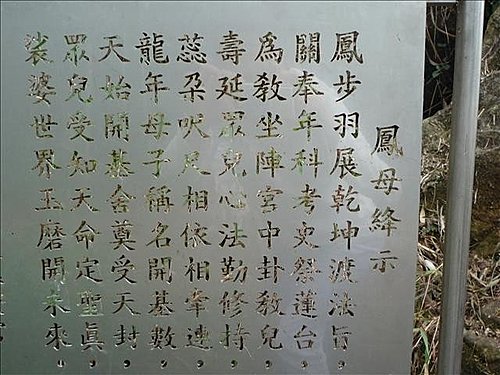 鳳母絳示
鳳步羽展乾坤渡法旨•
關奉年科考史祭蓮台•
為教坐陣宮中卦教兒•
壽延眾兒心法勤修持•
蕊朵呎尺相依相牽連•
龍年母子稱名開基數•
天始開基舍奠受天封•
眾兒受知天命定聖眞•
裟婆世界玉磨開未來•